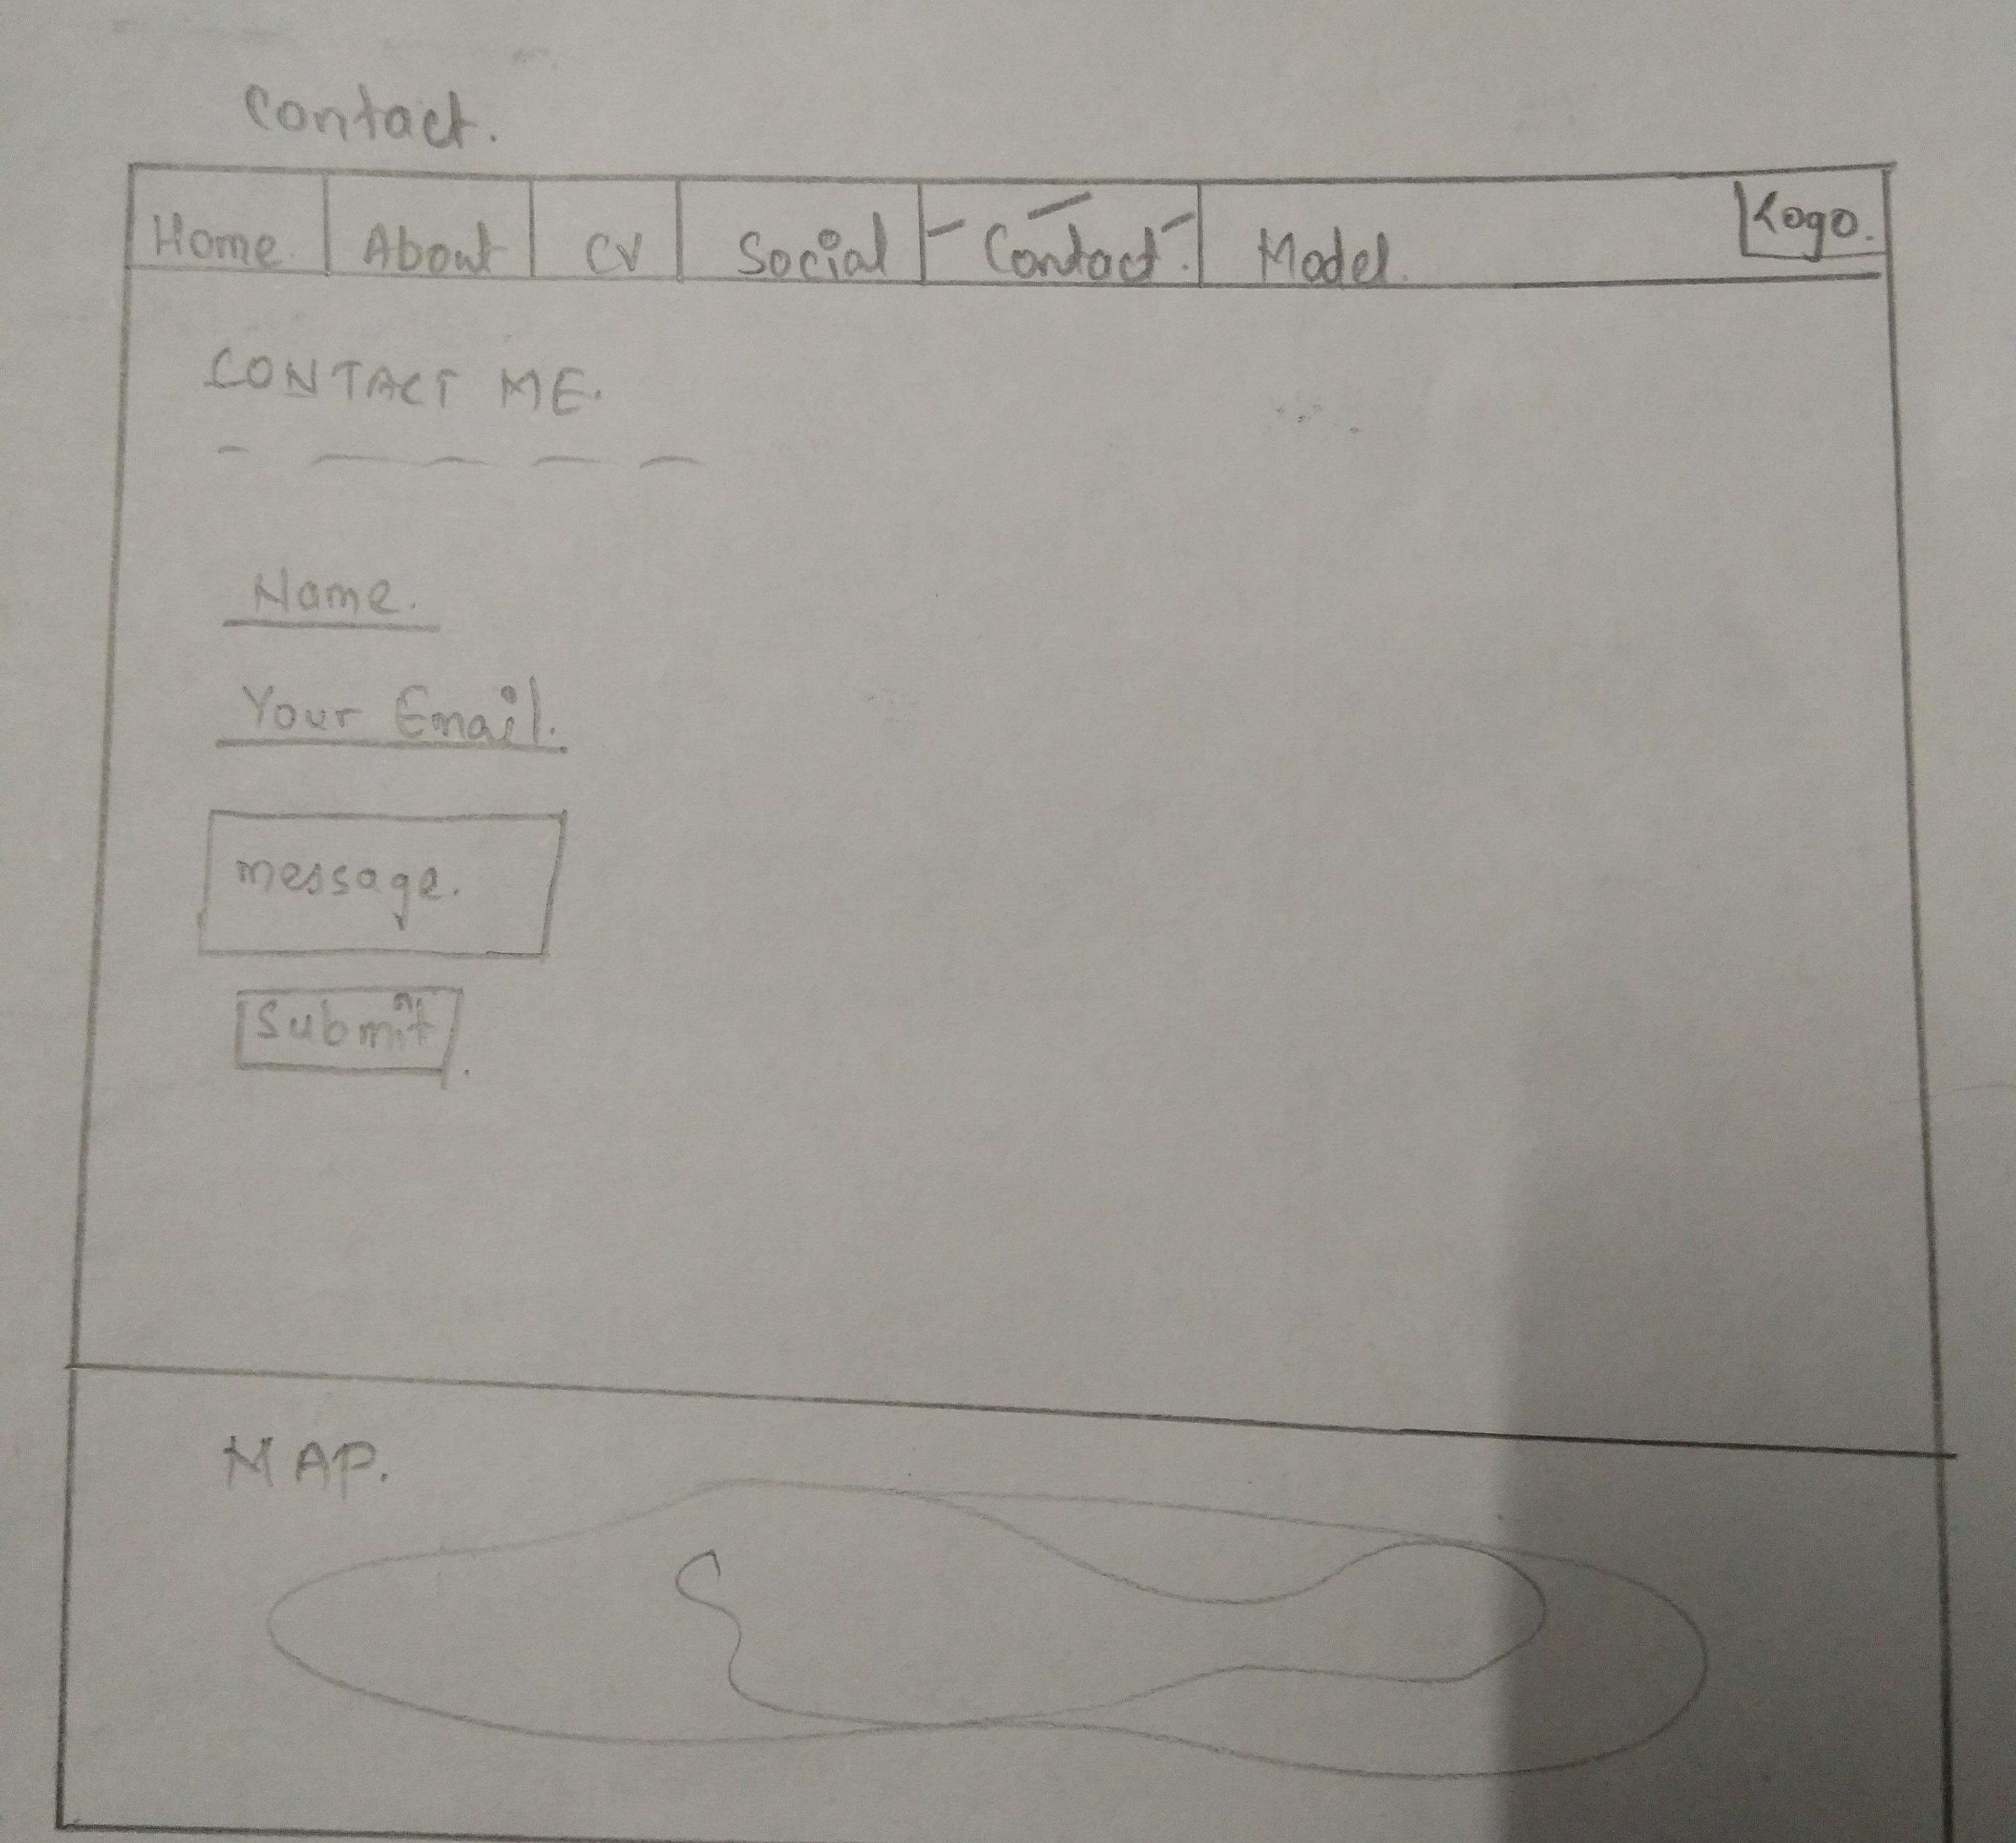 Contact.
Home About CV Social Contact. Model. Logo.
CONTACT ME.
Name.
Your Email.
message.
Submit
MAP.